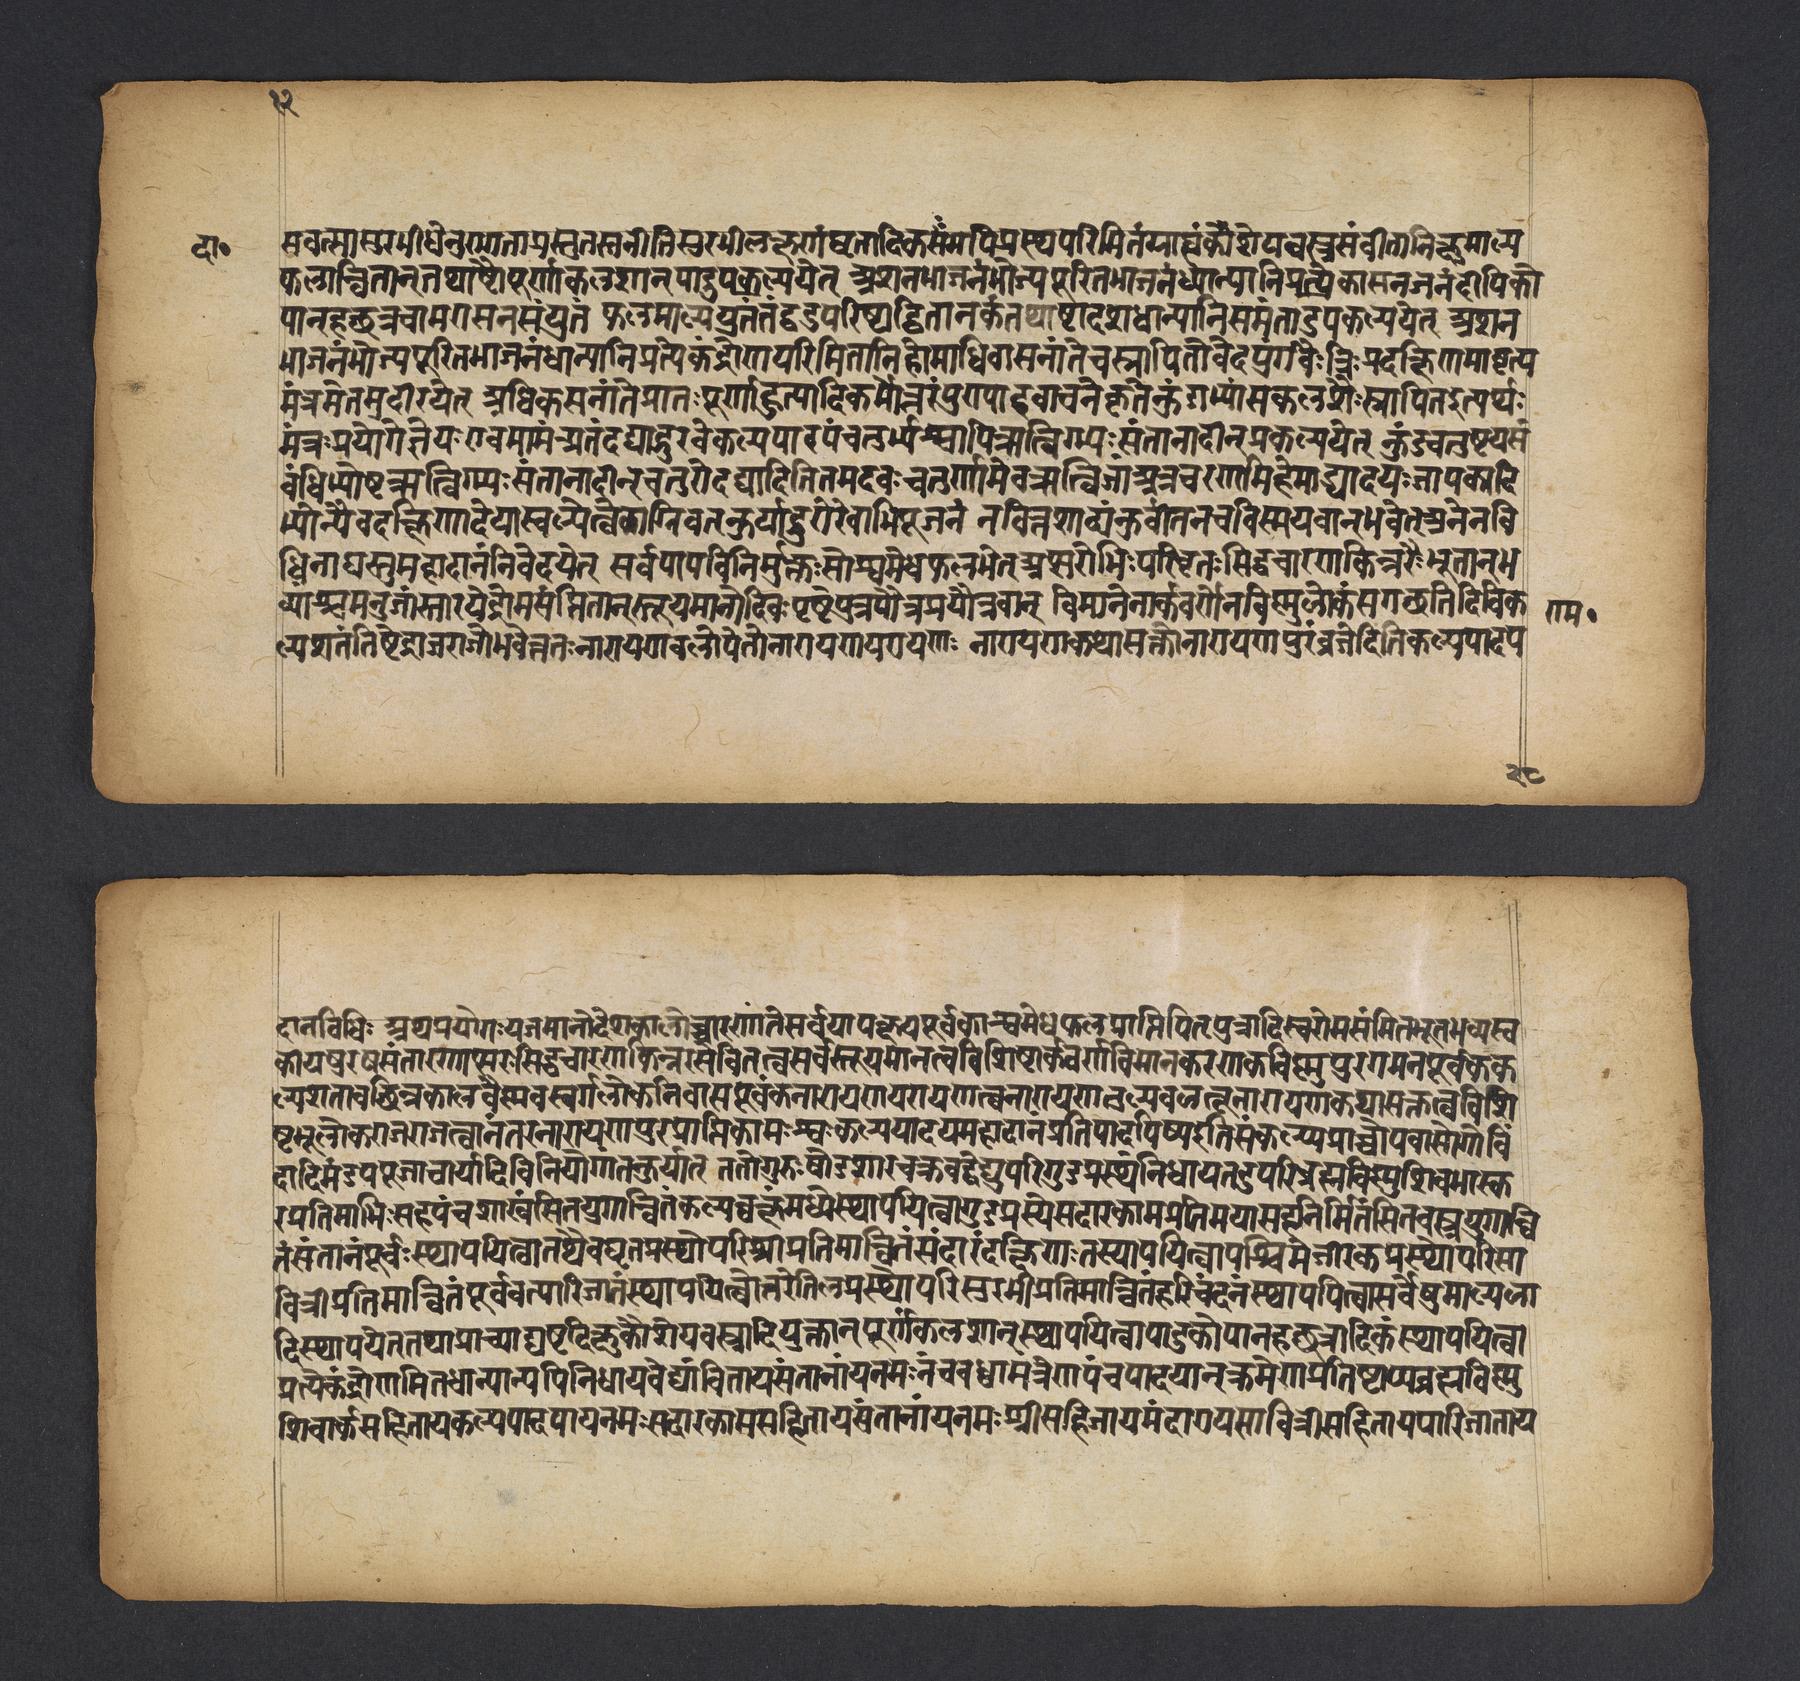 १२
दा॰
सवत्सासुरभीधेनुरूपाताप्रस्तुतस्तनीतिसुरभीलक्षणंघृतादिकसंमपिप्रस्थपरिमितंग्राह्यंकौशेयवस्त्रसंवीतानिक्षुमाल्य
फलान्वितान्तथाष्टौपूर्णकलशान्पादुपकल्पयेत् अशनभाजनंभोज्यपूरितभाजनंधान्यानिप्रत्येकासनजनंदीपिको
पानहछत्रचामरासनसंयुतं फलमाल्येयुतंतंद्वदुपरिष्टाद्वितानकंतथाष्टादशधान्यानिसमंतादुपकल्पयेत् अशन
भाजनंभोज्यपूरितभाजनंधान्यानिप्रत्येकंद्रोणपरिमितानिहोमाधिवासनांतेचस्नापितोवेदपुंगवैः त्रिःप्रदक्षिणमावृत्य
मंत्रमेतमुदीरयेत् अधिकसनांतेप्रातःपूर्णाहुत्यादिकर्मोत्तरंपुण्याहवाचनेकृतेकुंडाभ्यांसकलशैःस्नापितइत्यर्थः
मंत्रःप्रयोगेज्ञेयः एवमामंत्र्यतंदद्याद्गुरवेकल्पपादपंचतुर्भ्यश्चापिऋत्विग्भ्यःसंतानादीन्प्रकल्पयेत् कुंडचतुष्टयसं
बंधिभ्योष्टऋत्विग्भ्यःसंतानादीन्चतुरोदद्यादितितमदवःचतुर्णामेवऋत्विजांअत्रचरणमिहेमाद्र्यादयःजापकादि
भ्योन्यैवदक्षिणादेयास्वल्पेत्वेकाग्निवत्कुर्याद्गुरोरेवाभिपूजनं नवित्तशाठ्यंकुर्वीतनचविस्मयवान्भवेत्अनेनवि
धिनायस्तुमहादानंनिवेदयेत् सर्वपापविनिर्मुक्तःसोश्वमेधफलंलभेत्अप्सरोभिःपरिवृतःसिद्धचारणकिन्नरैःभूतानभ
व्याश्चमनुजांस्तारयेद्रोमसंमितान्स्तूयमानोदिवःपृष्ठेपुत्रपौत्रप्रपौत्रवान् विमानेनार्कवर्णेनविष्णुलोकंसगछतिदिविक
ल्पशतंतिष्ठेद्राजराजोभवेत्ततःनारायणबलोपेतोनारायणपरायणः नारायणकथासक्तोनारायणपुरंव्रजेदितिकल्पपादप
राम॰
२८
दानविधिः अथप्रयोगःयजमानोदेशकालोच्चारणांतेसर्वपापक्षयपूर्वकाश्वमेधफलप्राप्तिपितृपुत्रादिस्वरोमसंमितभूतभव्यस्व
कीयपुरुषसंतारणाप्सरःसिद्धचारणकिन्नरसेवितत्वसर्वस्तूयमानत्वविशिष्टार्कवर्णविमानकरणकविष्णुपुरगमनपूर्वकक
ल्पशतावछिन्नकालवैष्णवस्वर्गलोकनिवासपूर्वकनारायणपरायणत्वनारायणतुल्यबलत्वनारायणकथासक्तत्वविशि
ष्टभूलोकराजराजत्वानंतरनारायणपुरप्राप्तिकामःश्वःकल्पपादपमहादानंप्रतिपादयिष्यइतिसंकल्प्यप्राच्चोपवासोगोविं
दादिमंडपपूजाचार्यादिविनियोगांतंकुर्यात् ततोगुरुःषोडशारचक्रवद्वेद्युपरिगुडप्रस्थंनिधायतदुपरिब्रह्मविष्णुशिवभास्क
रप्रतिमाभिःसहपंचशाखंसितयुगान्वितंकल्पवृक्षंमध्येस्थापयित्वागुडप्रस्थेसदारकामप्रतिमयासहनिर्मितंसितवस्त्रयुगान्वि
तंसंतानंपूर्वेःस्थापयित्वातथैवघृतप्रस्थोपरिश्रीप्रतिमान्वितंमंदारंदक्षिणःतस्थापयित्वापश्चिमेजीरकप्रस्थोपरिसा
वित्रीप्रतिमान्वितंपूर्ववत्पारिजातंस्थापयित्वोत्तरेतिलप्रस्थोपरिसुरभीप्रतिमान्वितंहरिचंदनंस्थापयित्वासर्वेषुमाल्यफला
दिस्थापयेत्तथाप्राच्याद्यष्टदिक्षुकौशेयवस्त्रादियुक्तान्पूर्णकलशान्स्थापयित्वापादुकोपानहछत्रादिकंस्थापयित्वा
प्रत्येकंद्रोणमितधान्यान्यपिनिधायवेद्यांवितायसंतानायनमःनचवध्वामंत्रेणपंचपादपान्क्रमेणप्रतिष्टाप्यब्रह्मविष्णु
शिवार्कसहितायकल्पपादपायनमःसदारकामसहितायसंतानायनमःश्रीसहितायमंदारायसावित्रीसहितायपारिजाताय